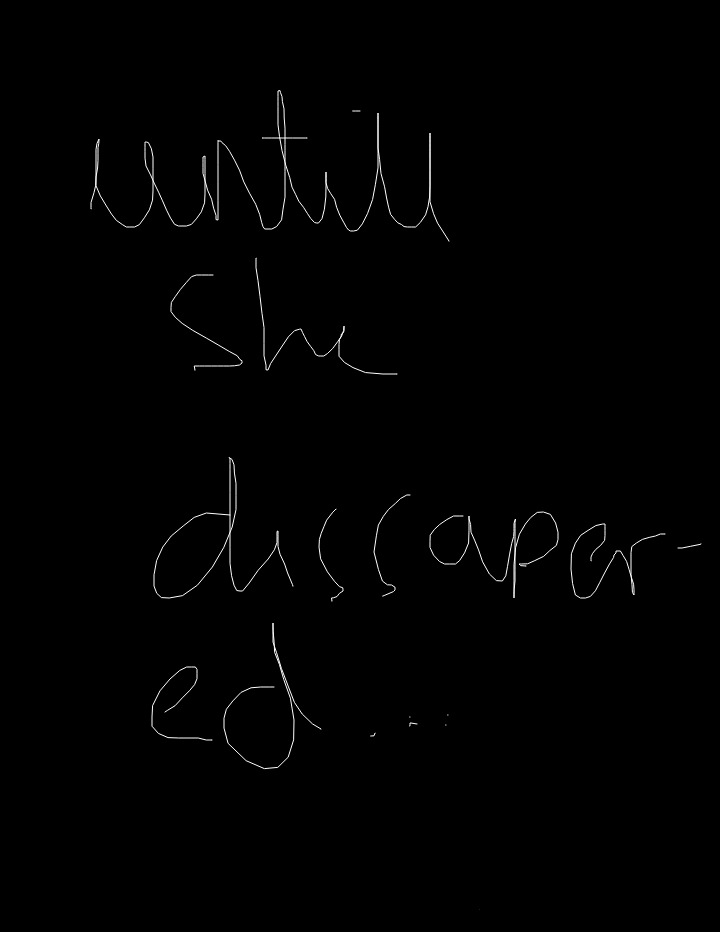 untill
She
dissaper-
ed...